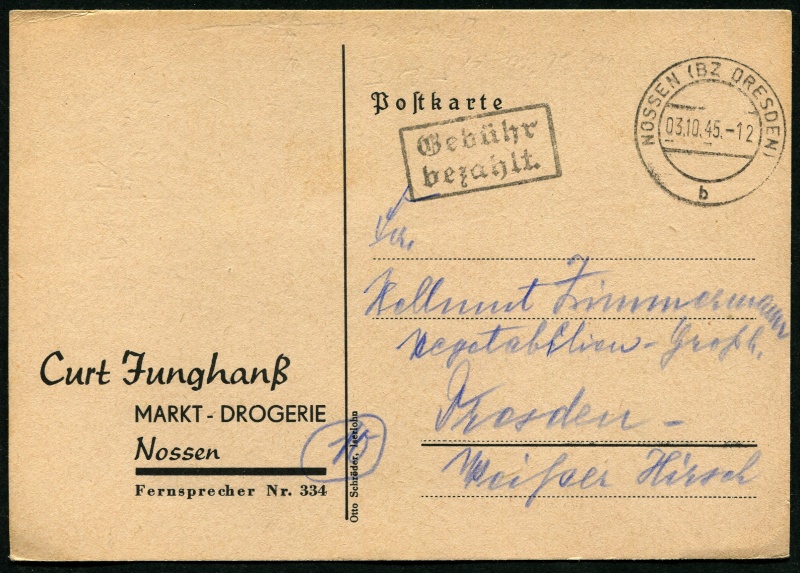 Postkarte
Gebühr
bezahlt.
NOSSEN (BZ DRESDEN)
03.10.45.-12
b
Fa.
Hellmut Zimmermann
Vegetabilien-Großh.
Dresden -
Weißer Hirsch
Curt Junghanß
MARKT-DROGERIE
Nossen
Fernsprecher Nr. 334
Otto Schröder, Iserlohn